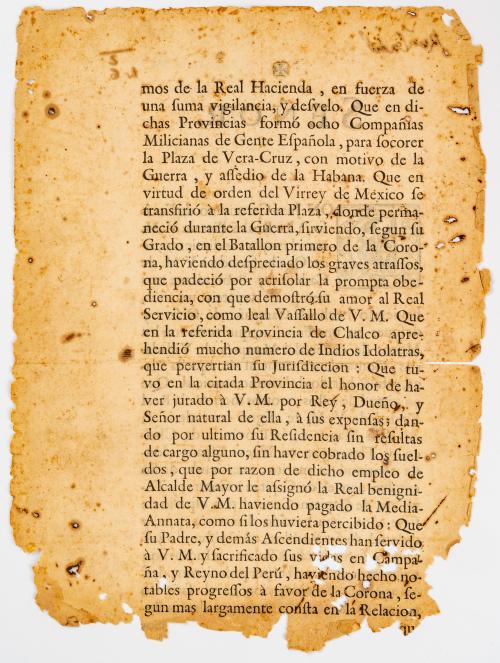 mos de la Real Hacienda, en fuerza de
una ſuma vigilancia, y deſvelo. Que en di-
chas Provincias formó ocho Compañias
Milicianas de Gente Eſpañola, para ſocorer
la Plaza de Vera-Cruz, con motivo de la
Guerra, y aſſedio de la Habana. Que en
virtud de orden del Virrey de Mexico ſe
transfirió à la referida Plaza, donde perma-
neció durante la Guerra, ſirviendo, ſegun ſu
Grado, en el Batallon primero de la Coro-
na, haviendo deſpreciado los graves atraſſos,
que padeció por acriſolar la prompta obe-
diencia, con que demoſtró ſu amor al Real
Servicio, como leal Vaſſallo de V. M. Que
en la referida Provincia de Chalco apre-
hendió mucho numero de Indios Idolatras,
que pervertian ſu Juriſdiccion: Que tu-
vo en la citada Provincia el honor de ha-
ver jurado à V. M. por Rey, Dueño, y
Señor natural de ella, à ſus expenſas; dan-
do por ultimo ſu Reſidencia ſin reſultas
de cargo alguno, ſin haver cobrado los ſuel-
dos, que por razon de dicho empleo de
Alcalde Mayor le aſſignó la Real benigni-
dad de V.M. haviendo pagado la Media-
Annata, como ſi los huviera percibido: Que
ſu Padre, y demás Aſcendientes han ſervido
à V. M. y ſacrificado ſus vidas en Campa-
ña, y Reyno del Perú, haviendo hecho no-
tables progreſſos à favor de la Corona, ſe-
gun mas largamente conſta en la Relacion,